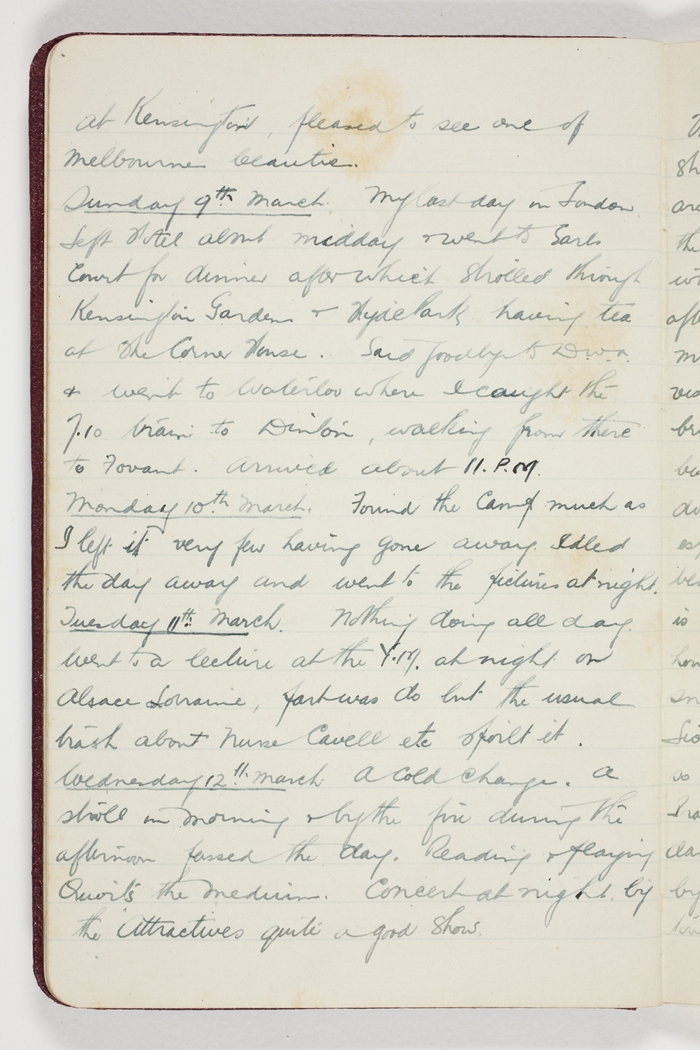 at Kensington, pleased to see one of
Melbourne beauties.
Sunday 9th March. My last day in London.
Left Hotel about midday & went to Earls
Court for dinner after which strolled through
Kensington Gardens & Hyde Park having tea
at the Corner House. Said goodbye to
& went to Waterloo where I caught the
7.10 train to Dinton, walking from there
to Fovant. Arrived about 11.P.M.
Monday 10th March. Found the Camp much as
I left it very few having gone away. Idled
the day away and went to the pictures at night.
Tuesday 11th March. Nothing doing all day.
Went to a lecture at the Y.M. at night on
Alsace Lorraine, part was do but the usual
trash about Nurse Cavell etc spoilt it.
Wednesday 12th March. A cold change. A
stroll in morning & by the fire during the
afternoon passed the day. Reading & playing
Quoits the medium. Concert at night by
the Attractives quite a good show.